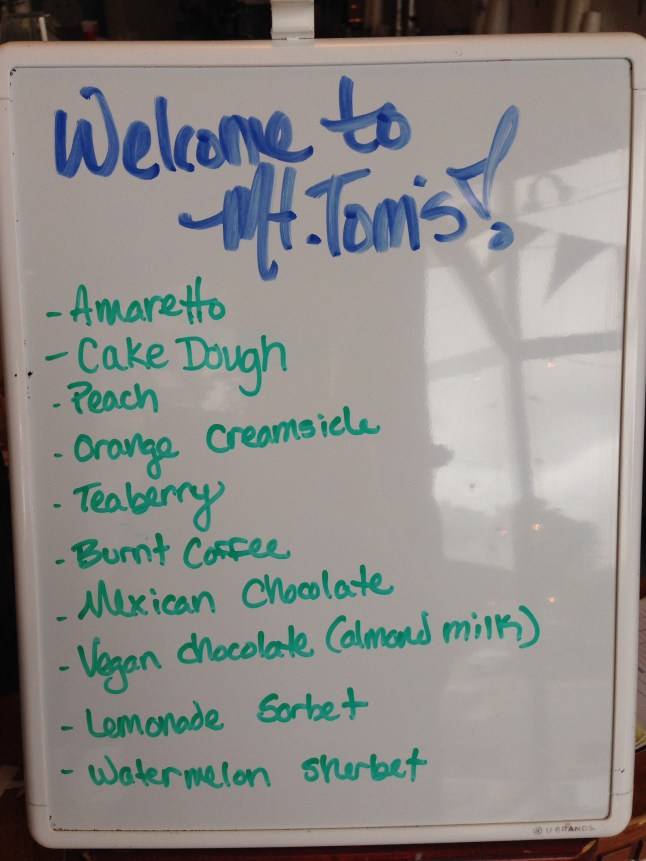 Welcome to
Mt. Tom's!
- Amaretto
- Cake Dough
- Peach
- Orange Creamsicle
- Teaberry
- Burnt Coffee
- Mexican Chocolate
- Vegan chocolate (almond milk)
- Lemonade Sorbet
- Watermelon sherbet
U BRANDS